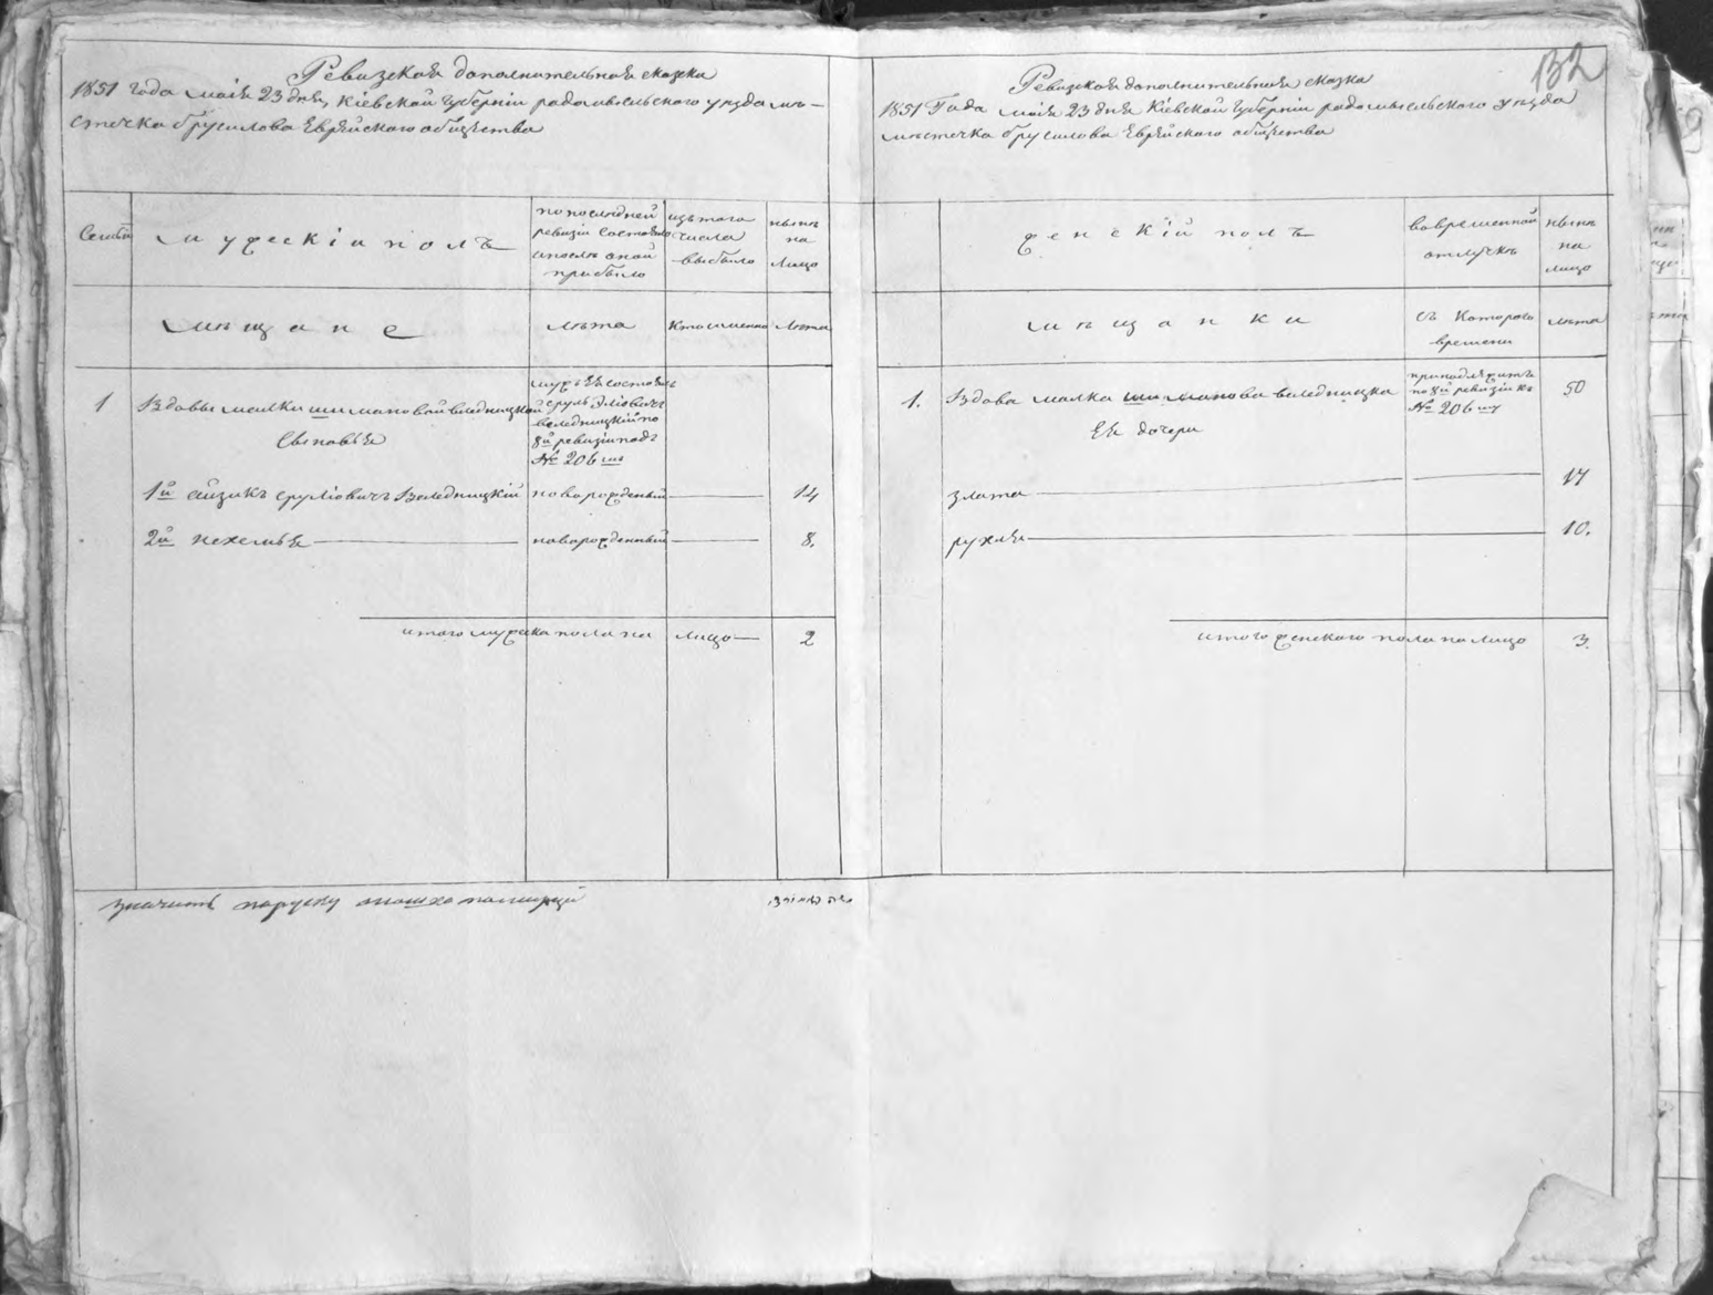 132
Ревизская дополнительная сказка
1851 года маія 23 дня, Кіевской Губерніи радомысльского уѣзда мѣ-
стечка брусилова Еврейского общества
Семьи
мужескій полъ
по последней
ревизіи состояло
и после оной
прибыло
изъ того
числа
выбыло
нынѣ
на
лицо
мѣщане
лѣта
Кто именно
лѣта
1
Вдовы малки шимановой веледницкой
Сыновья
мужъ Ея состоялъ
сруль Эліовичъ
веледницкій по
8й ревизіи подъ
№ 206
1й айзикъ сруліовичъ Веледницкій новорожденый 14
2й нехемья новорожденный 8.
итого мужеска пола на лицо 2
Ревизская дополнительная сказка
1851 Года маія 23 дня Кіевской Губерніи радомысльского уѣзда
мѣстечка брусилова Еврейского общества
женскій полъ
во временной
отлучкѣ
нынѣ
на
лицо
мѣщанки
съ Которого
времени
лѣта
1. Вдова малка шиманова веледницка
Ея дочери
принадлежитъ
по 8й ревизіи къ
№ 206 му
50
злата 17
рухля 10.
итого женского пола на лицо 3.